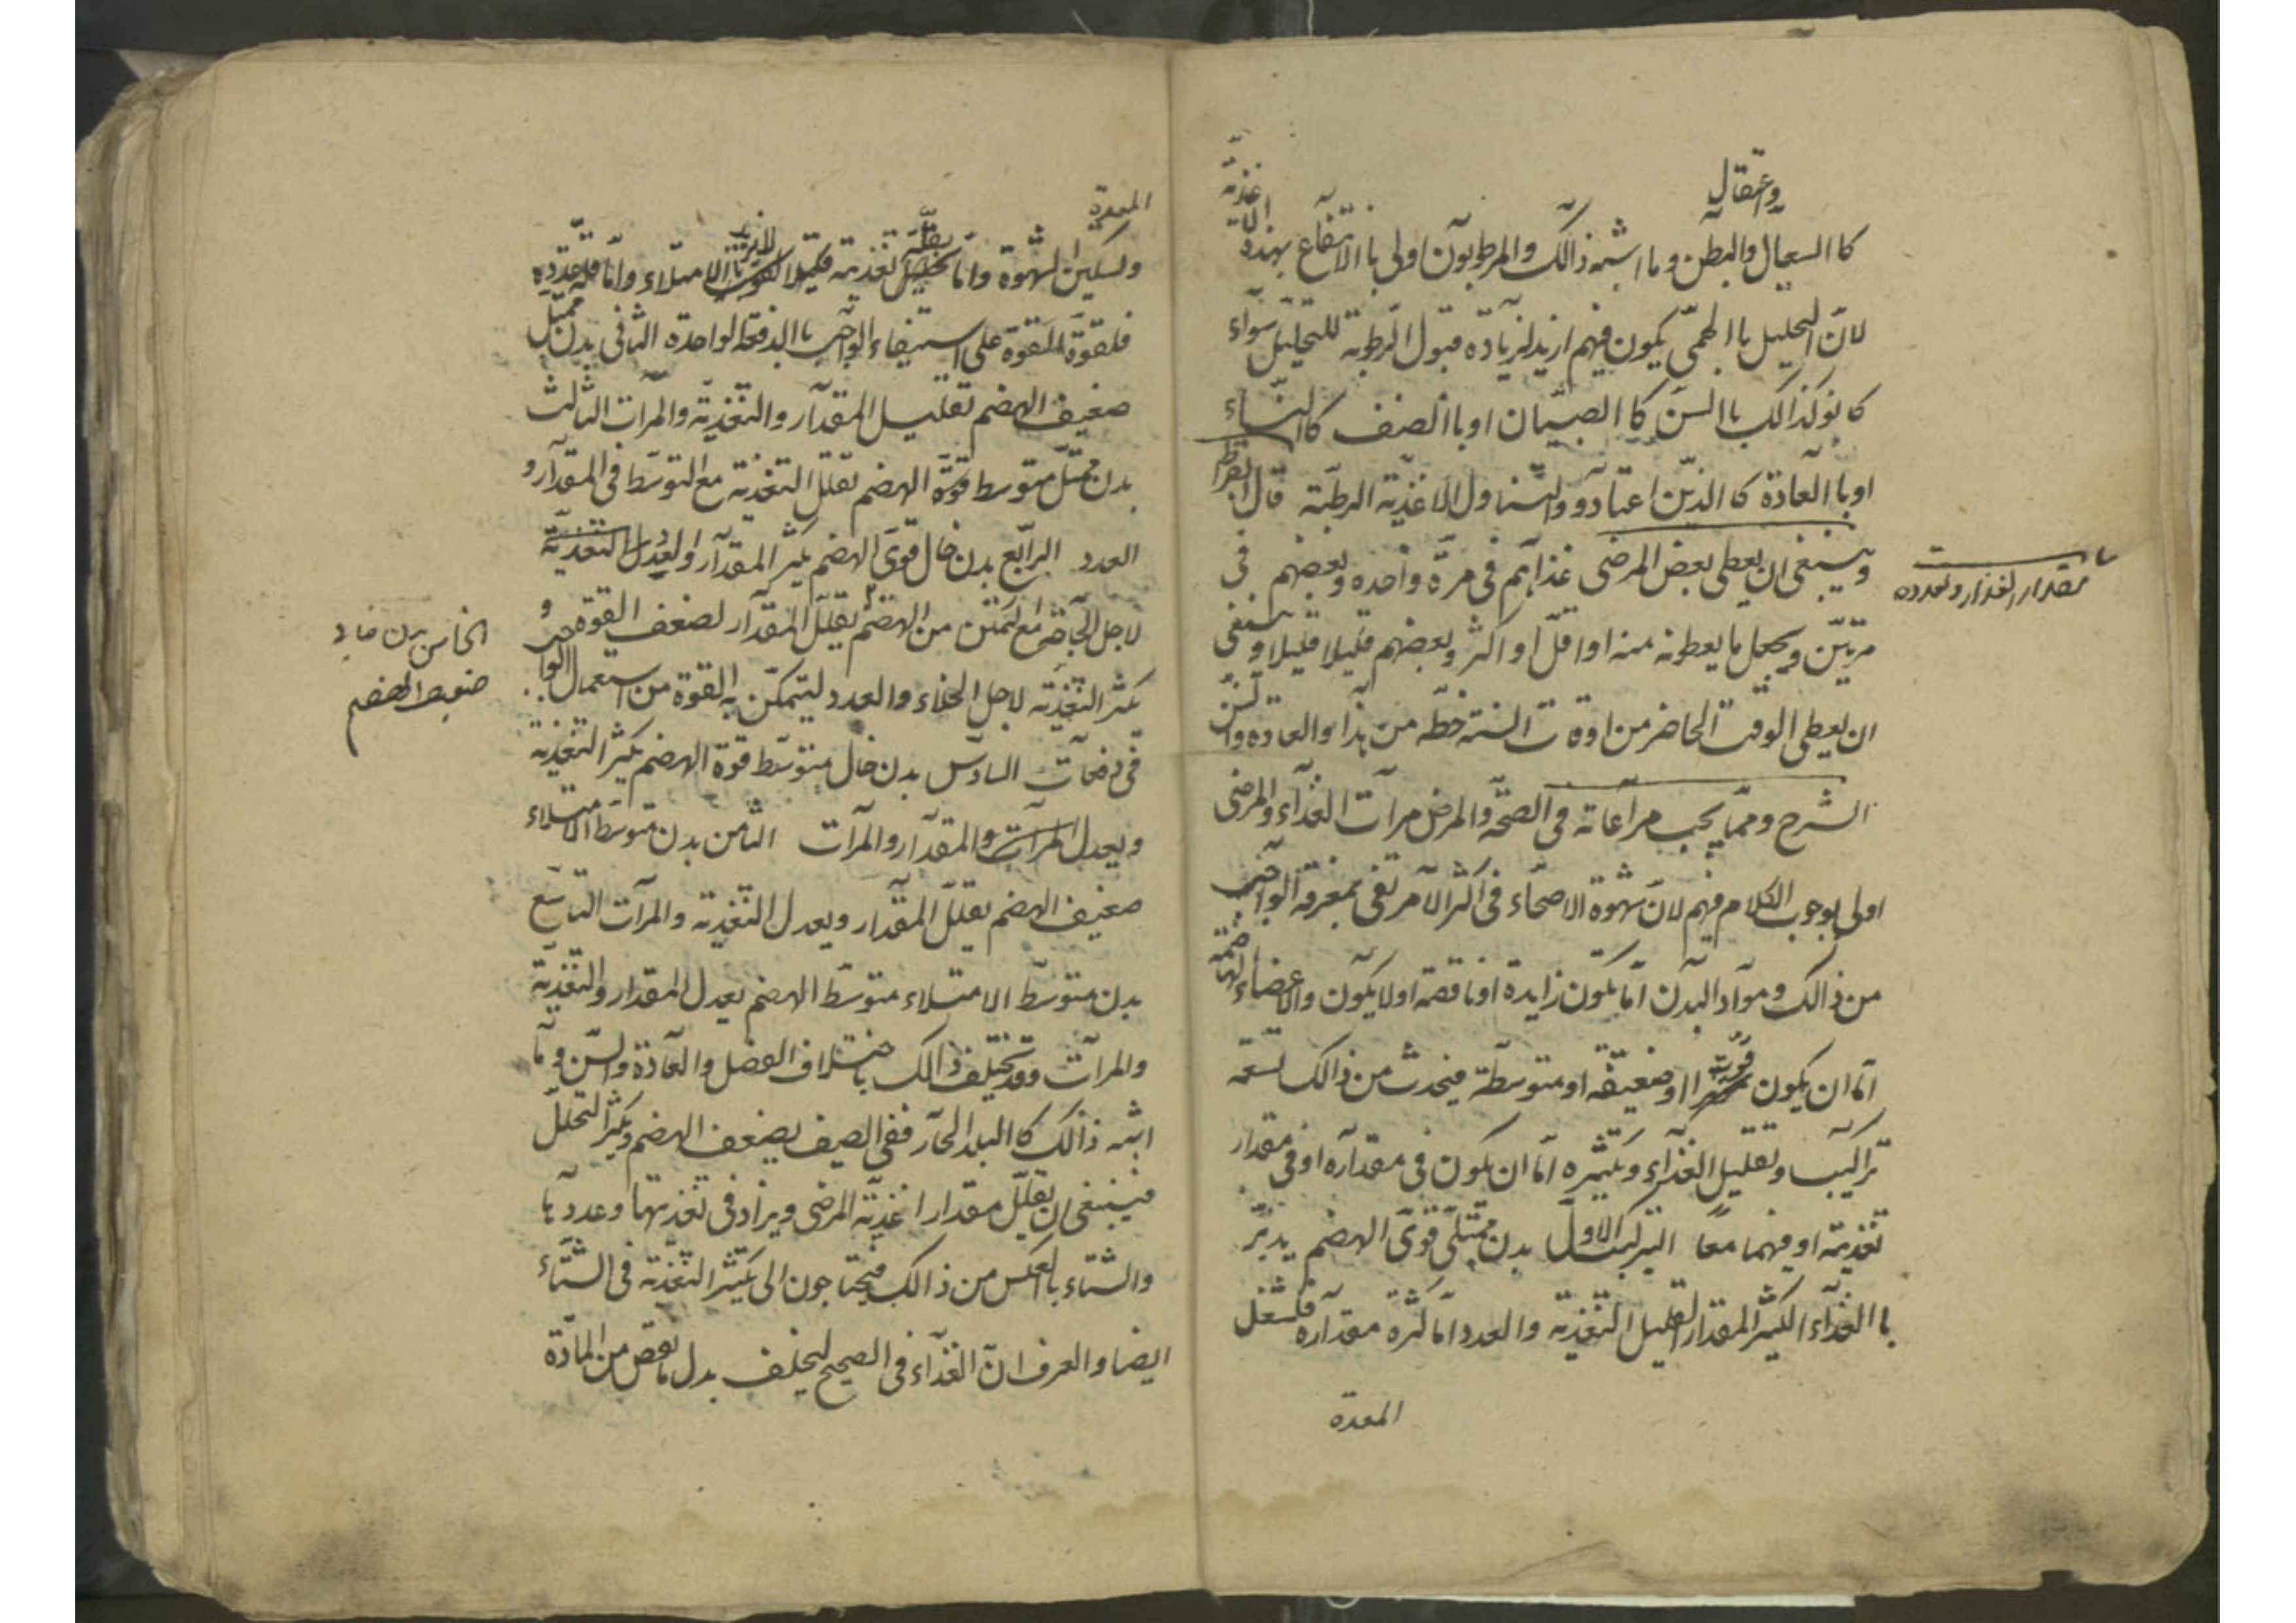 واعتقال
كا السعال والبطن وما اشبه ذالك والمرطوبون اولى با الانتفاع بهذه الاغذية
لان التحليل با الحمى يكون فيهم ازيد لزيادة قبول الرطوبة للتحليل سوآء
كانو كذالك با السن كا الصبيان او با الصنف كا النساء
او با العادة كا الذين اعتادوو والتناول الاغذية الرطبة قال ابقراط
وينبغى ان يعطى بعض المرضى غذآهم فى مرة واحده وبعضهم فى
مقدار الغذا وتعدده
مرتين ويجعل ما يعطونه منه اوا قل او اكثر وبعضهم قليلا قليلا وينبغى
ان يعطى الوقت الحاضر من اوقات السنة خطه من هذا والعادة والسن
الشرح ومما يجب مرآعاته فى الصحة والمرض مرآت الغذآء والمرضى
اولى بوجوب الكلام فيهم لان شهوة الاصحاء فى اكثر الامر تفى بمعرفة الواجب
من ذالك ومواد البدن اما يكون زايدة او ناقصة او لا يكون والاعضاء الهاضمة
اما ان يكون قوية او ضعيفة او متوسطة فيحدث من ذالك تسعة
تراكيب وتقليل الغذآء وتكثيره اما ان يكون فى مقدآره او فى مقدار
تغذيته او فيهما معا التركيب الاول بدن ممتلى قوى الهضم يدبر
با الغذآء الكثير المقدار القليل التغذية والعدد اما كثرة مقدآره فلشغل
المعدة
المعدة
وتسكين الشهوة واما تقليل تغذيته فكيلا يزيد الامتلاء واما قلة عدده
فلقوة القوة على استيفاء الواجب با الدفعة الواحدة الثانى بدن ممتل
ضعيف الهضم تقليل المقدآر والتغذية والمرآت الثالث
بدن ممتل متوسط قوة الهضم تقلل التغذية مع التوسط فى المقدآر و
العدد الرابع بدن خال قوى الهضم يكثر المقدآر او يعدل التغذية
لاجل الحاجة مع التمكن من الهضم يقلل المقدآر لضعف القوة و
الخامس بدن خال
ضعيف الهضم
يكثر التغذية لاجل الخلاء والعدد ليتمكن به القوة من استعمال الواجب
فى دفعات السادس بدن خال متوسط قوة الهضم يكثر التغذية
ويعدل المرآت والمقدآر والمرآت الثامن بدن متوسط الامتلاء
ضعيف الهضم يقلل المقدآر ويعدل التغذية والمرآت التاسع
بدن متوسط الامتلاء متوسط الهضم يعدل المقدار والتغذية
والمرآت وقد يختلف ذالك باختلاف الفصل والعادة والسن وما
اشبه ذالك كا البلد الحار ففى الصيف يضعف الهضم ويكثر التحلل
فينبغى ان يقلل مقدار اغذية المرضى ويزاد فى تغذيتها وعددها
والشتاء با العكس من ذالك فيحتاجون الى يكثر التغذية فى الشتاء
ايضا والعرف ان الغذآء فى الصحيح ليخلف بدل ما نقص من المادة